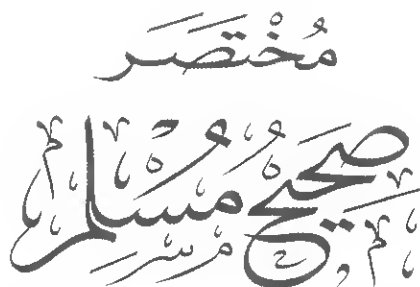 مُخْتَصَر
صَحِيح مُسْلِم